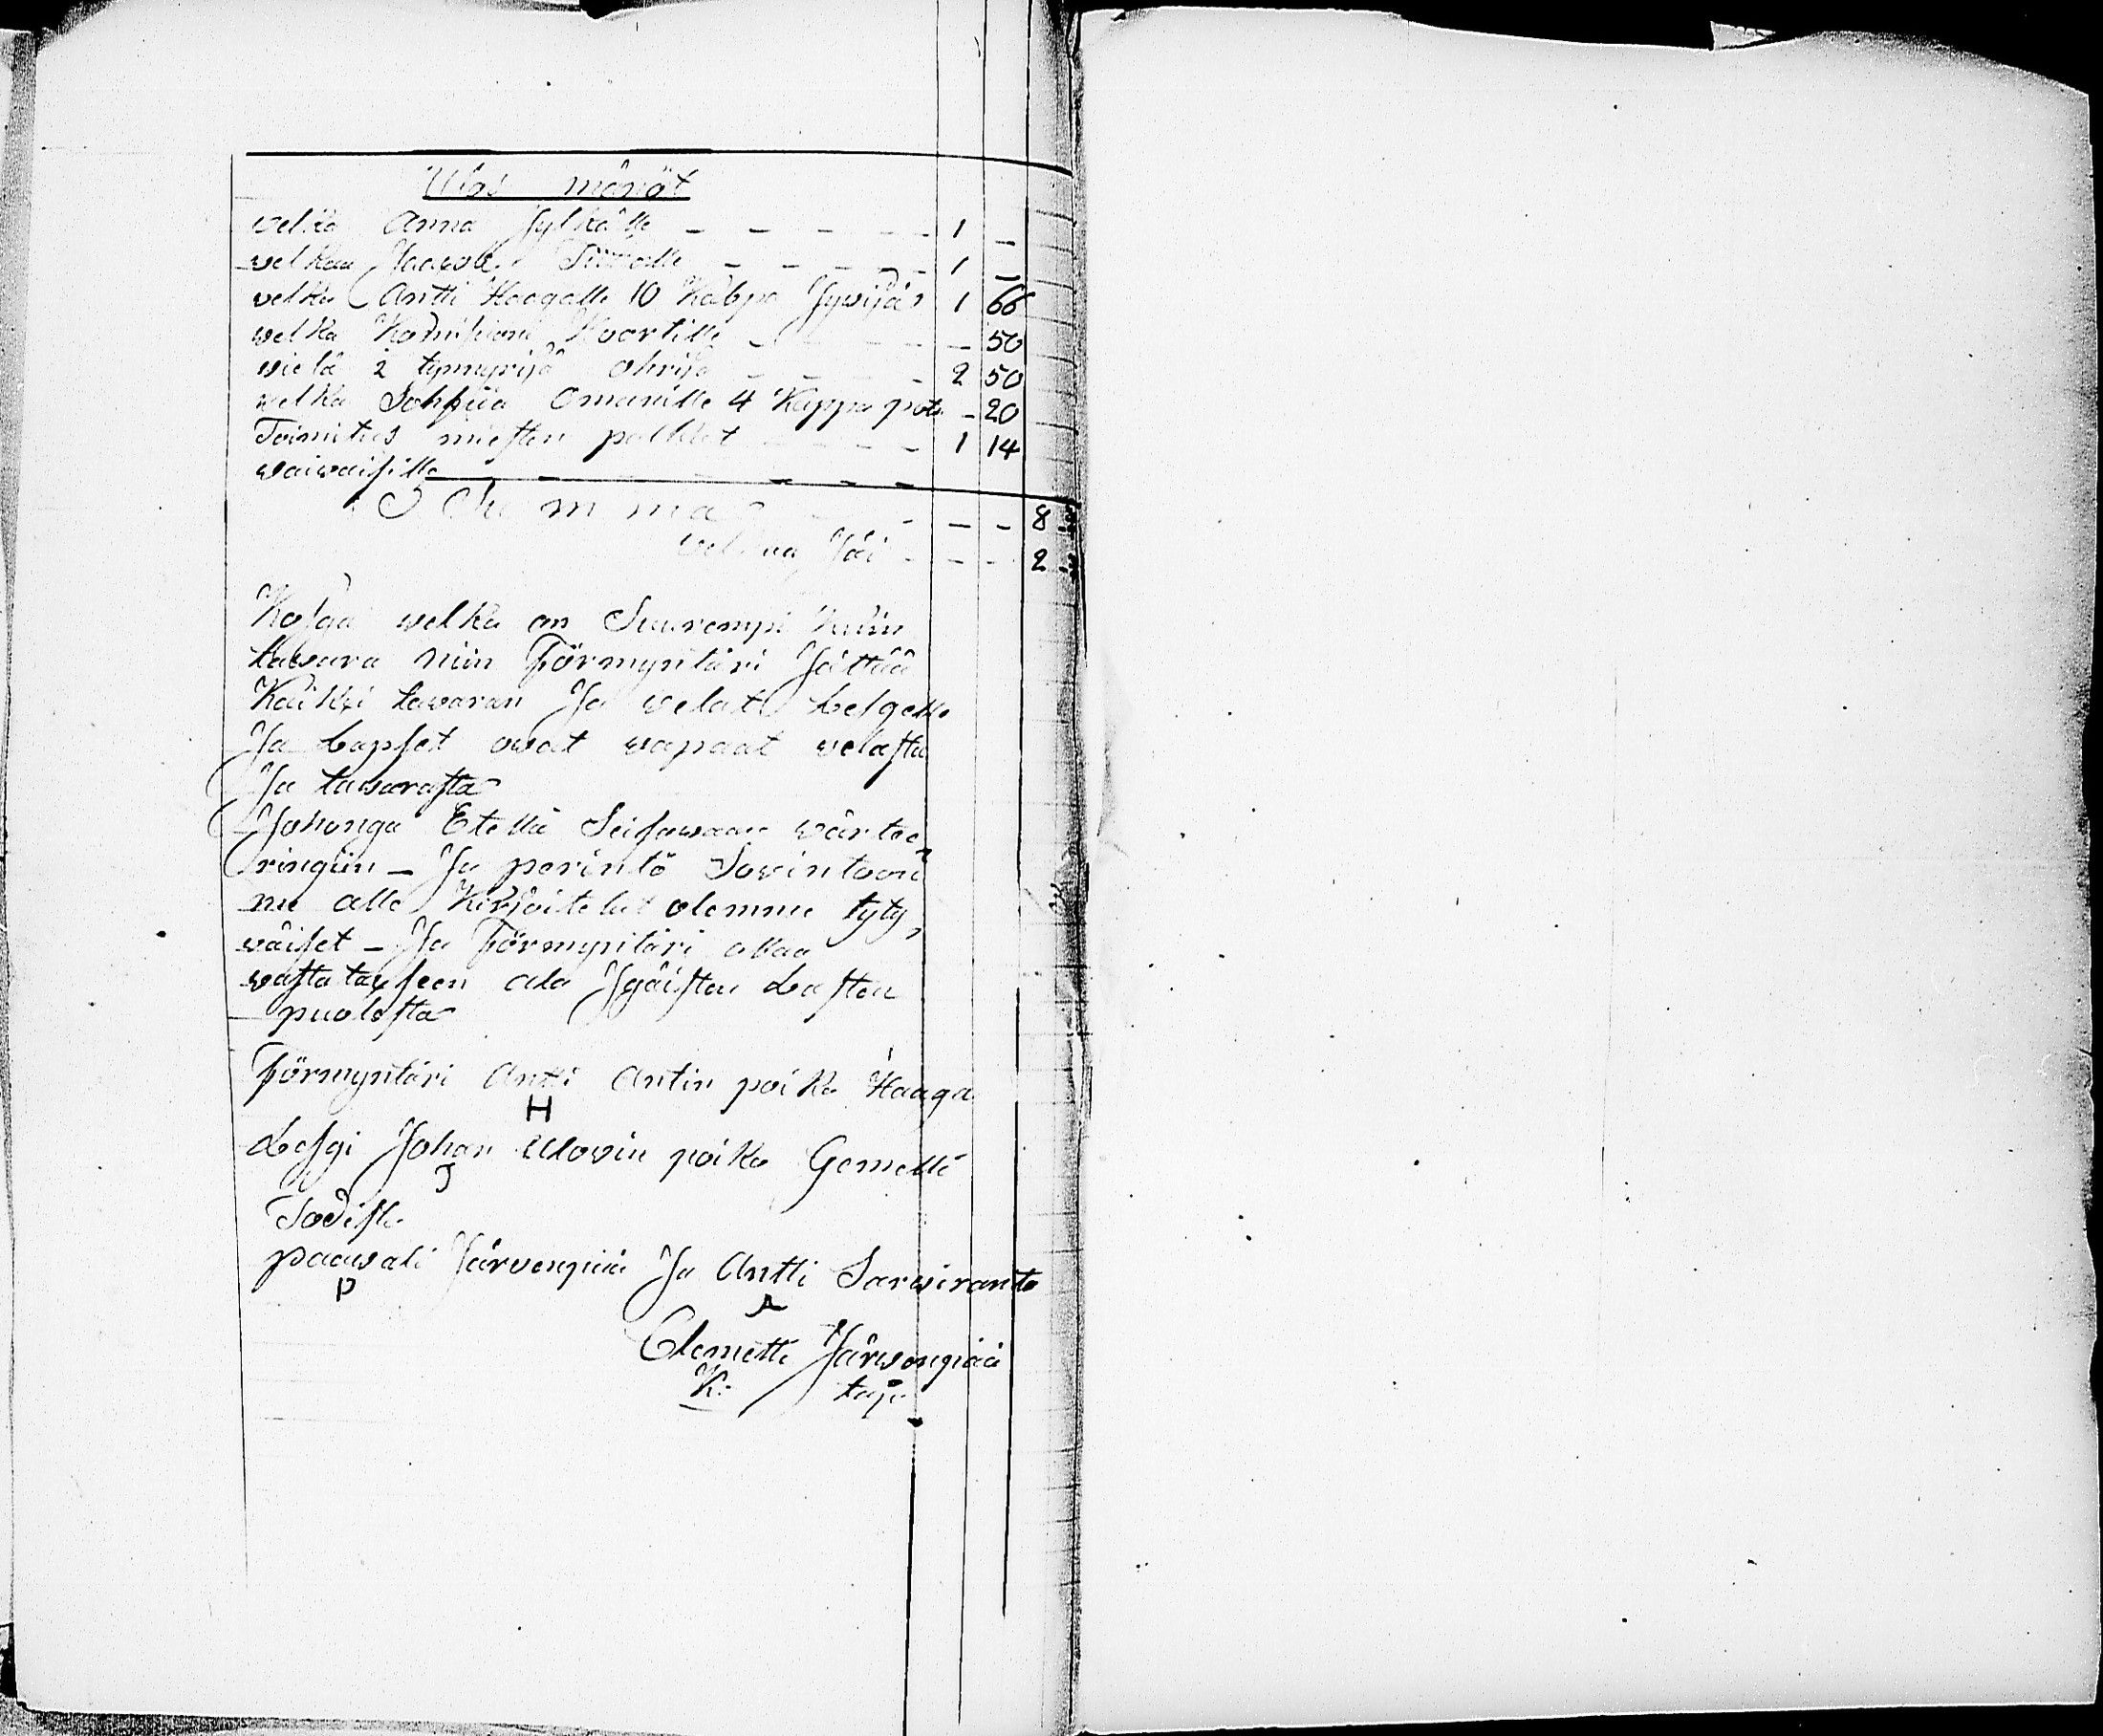 Ulos mänöt
velka Anna Jylkälle - - - - 1 -
velkaa Jaawole - - - - 1 -
velka Antti Haagalle 10 Kappa Jywijä 1 66
velka Hoortille - - - - 50
vielä 2 tynnyrijä ohrija - - - 2 50
velka Sohfiia Omanille 4 Kappa pot. - 20
Toimitus miesten palkat - - - 1 14
waiwaisille - - - -
Summa - - - - 8
velkaa Jää - - - - 2
Koska velka on Suurempi kuin
tawara niin Förmyntäri Jättää
Kaikki tawaran Ja velat Lesgelle
Ja Lapset owat wapaat velasta
Ja tawarasta
Johonga Etellä Seisawaan wärtee„
ringiin - Ja perintö Sowintoon
me alle Kirjoitelut olemme tyty„
wäiset - Ja Förmyntäri ottaa
wastatayseen ala Jgäisten Lasten
puolesta
Förmyntäri Antti Antin poika Haaga
H
Lesgi Johan Ulovin poika Gemetti
J
Todista
paawali Järvenpää Ja Antti Sarwiranta
P A
Clemetti Järwenpää
K: taja